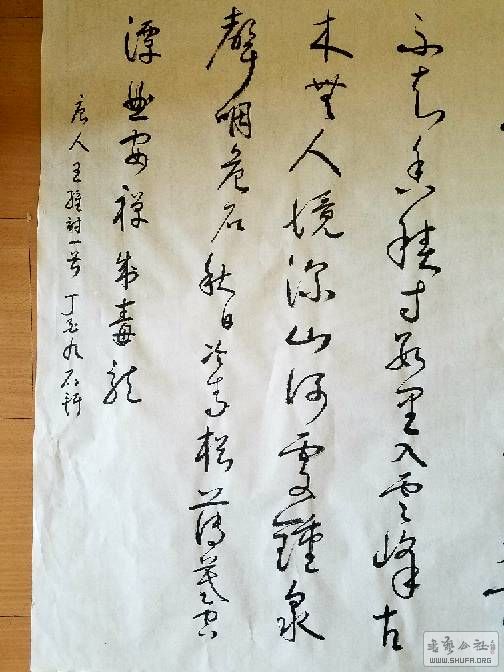 不知香積寺數里入雲峰古
木無人境深山何處鐘泉
聲咽危石秋日冷青松薄暮空
潭曲安禪制毒龍
唐人王維詩一首 丁酉九
书艺公社
WWW.SHUFA.ORG